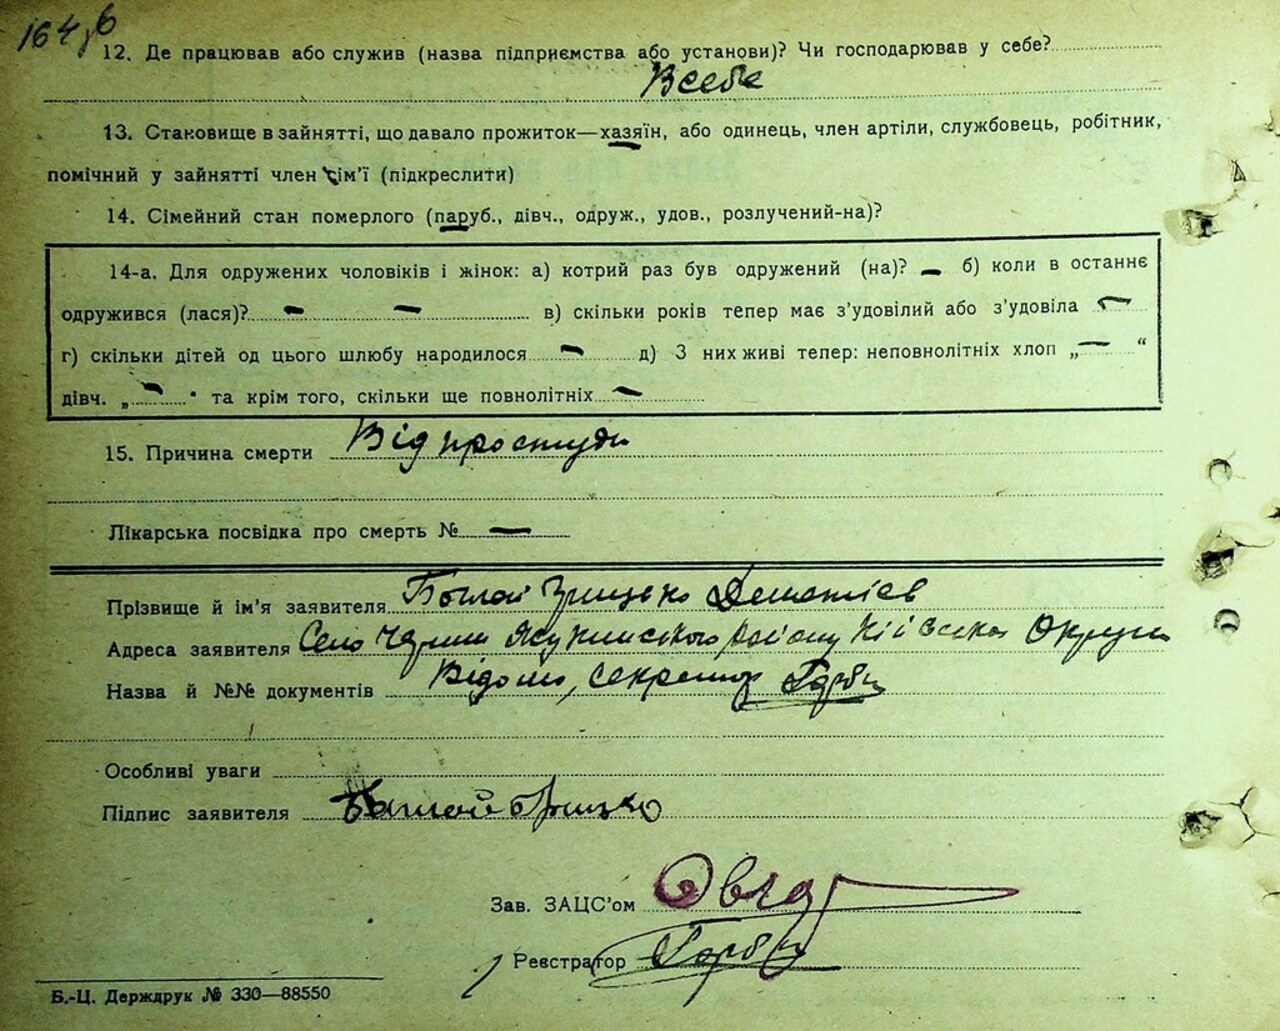 164 зв
12. Де працював або служив (назва підприємства або установи)? Чи господарював у себе?
В себе
13. Становище в зайнятті, що давало прожиток—хазяїн, або одинець, член артіли, службовець, робітник,
помічний у зайнятті член сім'ї (підкреслити)
14. Сімейний стан померлого (паруб., дівч., одруж., удов., розлучений-на)?
14-а. Для одружених чоловіків і жінок: а) котрий раз був одружений (на)? — б) коли в останнє
одружився (лася)? — — в) скільки років тепер має з'удовілий або з'удовіла —
г) скільки дітей од цього шлюбу народилося — д) З них живі тепер: неповнолітніх хлоп „—“
дівч. „—" та крім того, скільки ще повнолітніх —
15. Причина смерти Від простуди
Лікарська посвідка про смерть № —
Прізвище й ім'я заявителя Грицько
Адреса заявителя Село району Київської Округи
Назва й №№ документів Відомо, секретар
Особливі уваги
Підпис заявителя Грицько
Зав. ЗАЦС'ом
Реєстратор
Б.-Ц. Держдрук № 330—88550